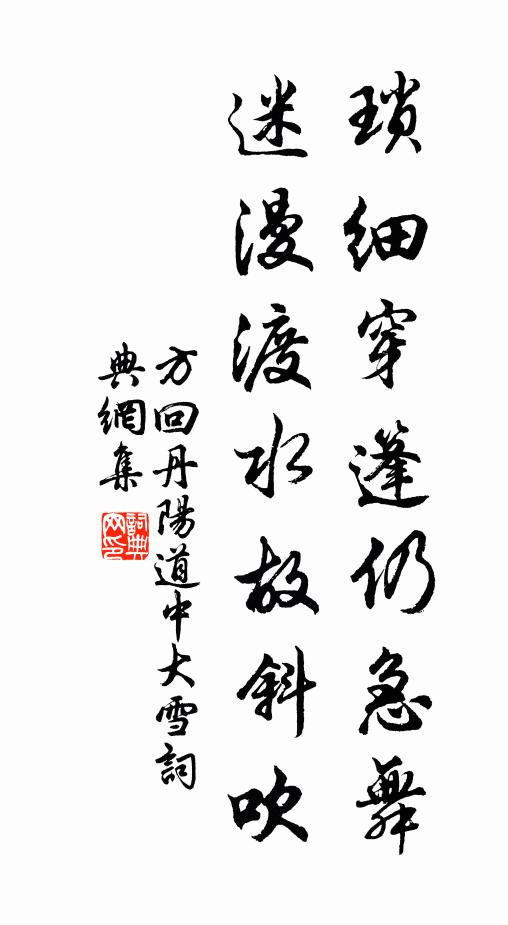 瑣細穿篷仍急舞
迷漫渡水故斜吹
方回丹陽道中大雪詞
典網集
詞典
网印